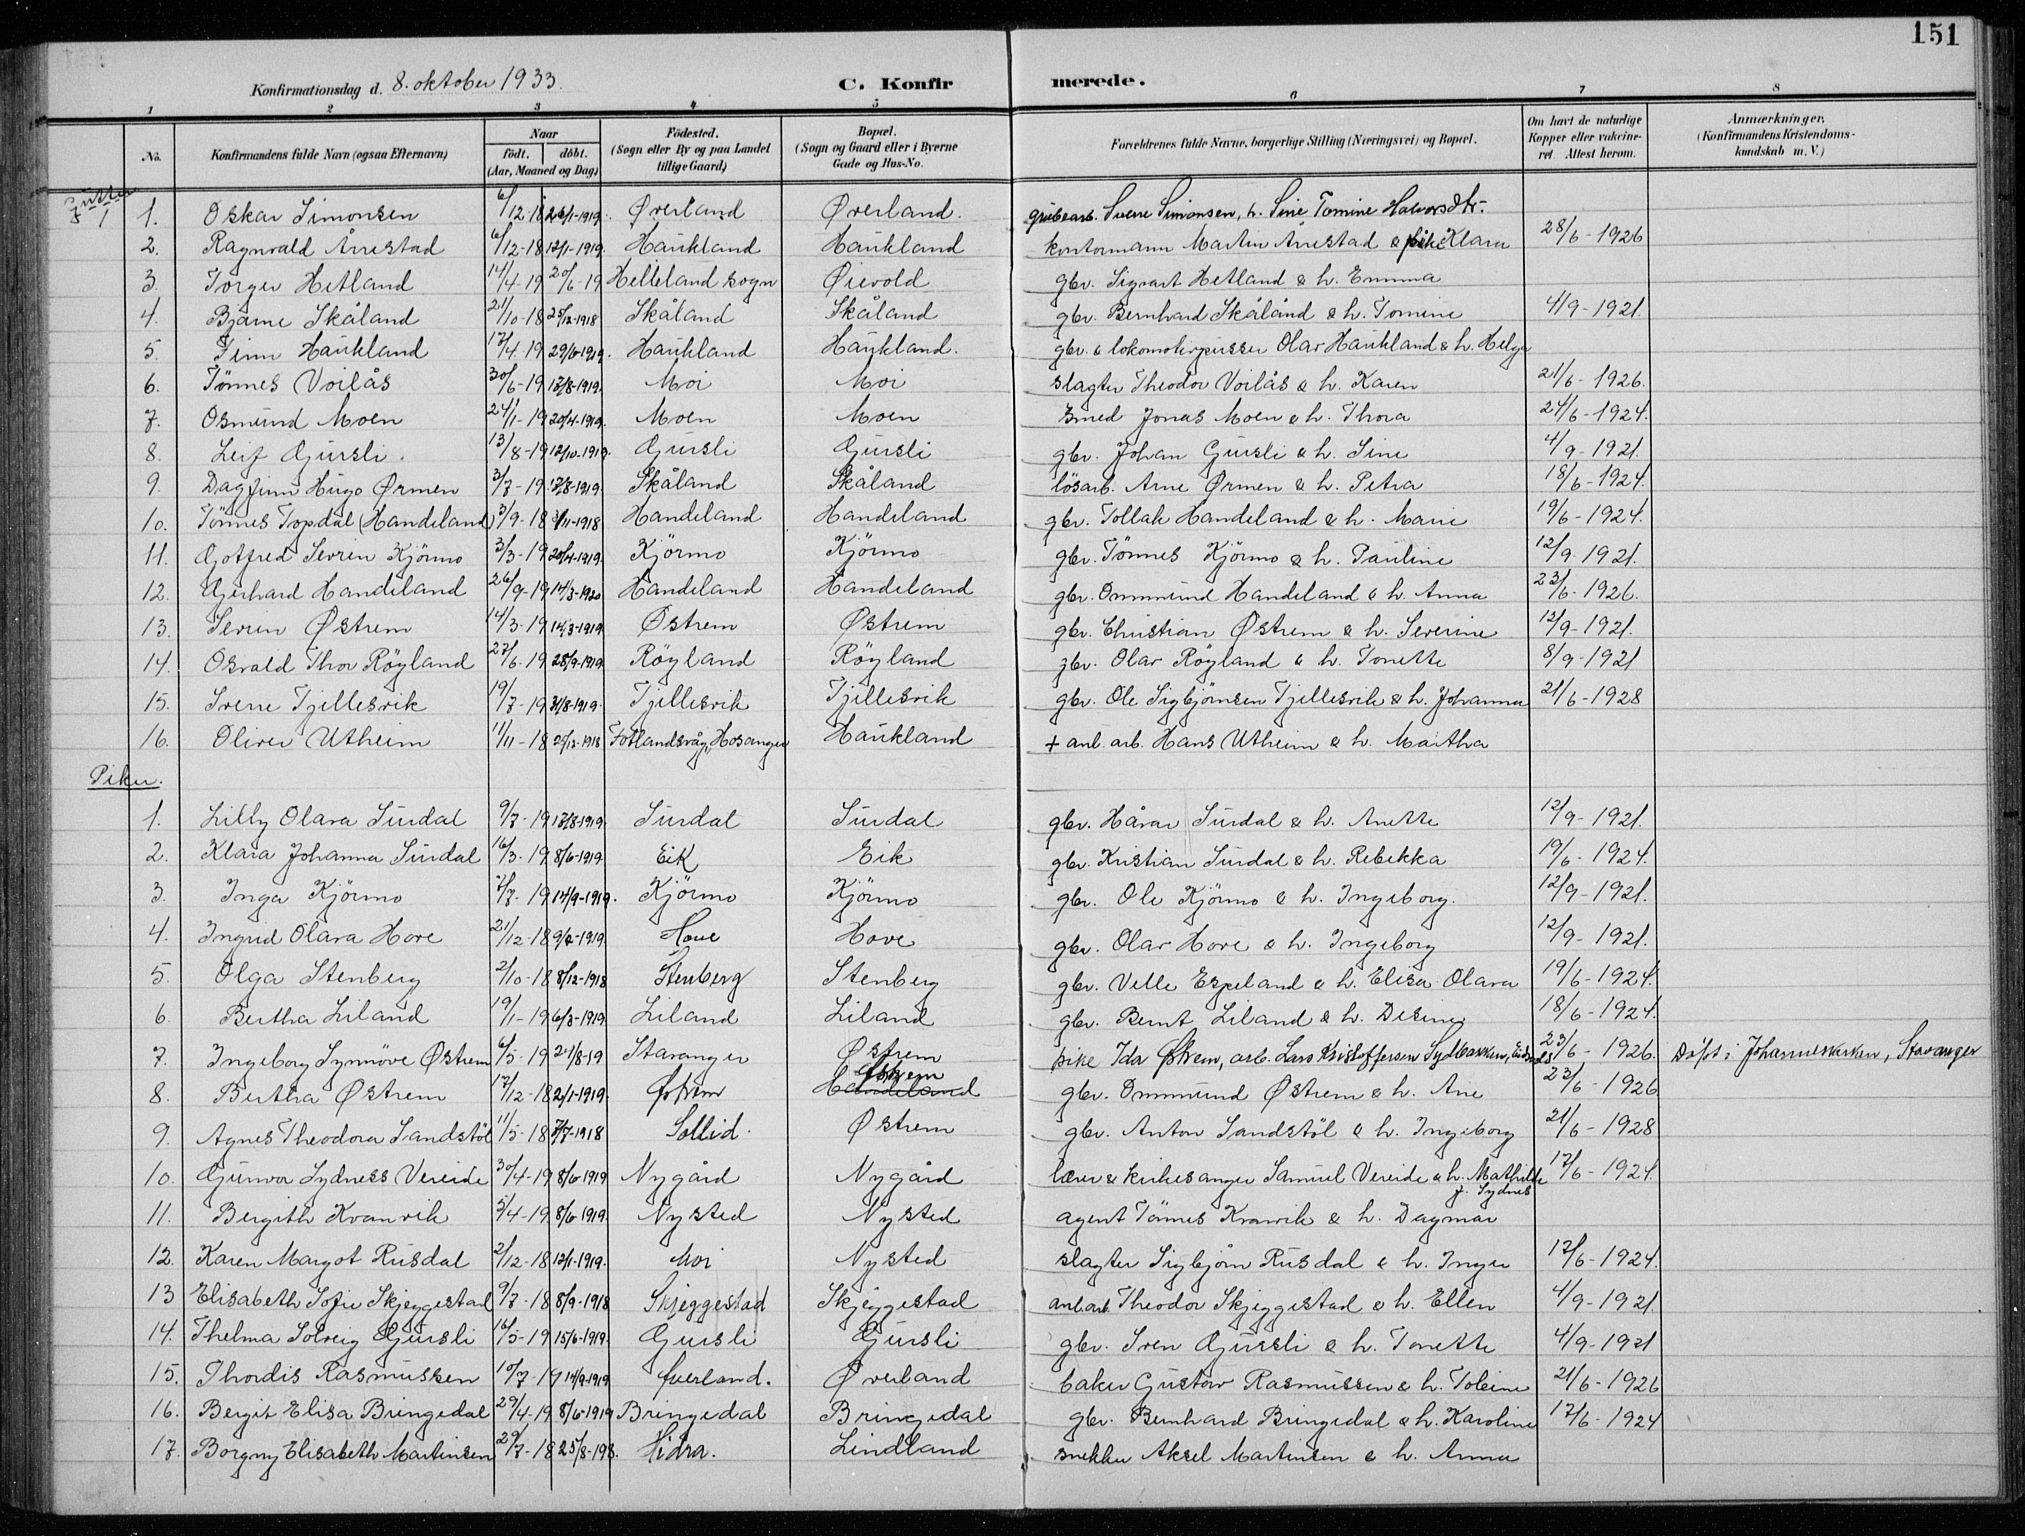 151
Konfirmationsdag d. 8. oktober 1933. C. Konfirmerede.
1 2 3 4 5 6 7 8
No. Konfirmandens fulde Navn (ogsaa Efternavn) Naar födt. döbt. (Aar, Maaned og Dag) Födested. (Sogn eller By og paa Landet tillige Gaard) Bopæl. (Sogn og Gaard eller i Byerne Gade og Hus-No. Forældrenes fulde Navne, borgerlige Stilling (Næringsvei) og Bopæl. Om havt de naturlige Kopper eller vakcineret. Attest herom. Anmærkninger. (Konfirmandens Kristendomskundskab m. V.)
Gutter
1. Oskar Simonsen 6/12-18 26/1-1919. Øverland Øverland. grubearb. Sverre Simonsen, h. Sine Tomine Halvorsdtr.
2. Ragnvald Årrestad 6/12-18 12/1-1919. Haukland Haukland kontormann Martin Årrestad & pike Klara 28/6-1926
3. Torger Hetland 14/4-19 20/6-19 Helleland sogn Øievold gbr. Sigvart Hetland & h. Emma
4. Bjarne Skåland 21/10-18 25/12-1918 Skåland Skåland gbr. Bernhard Skåland & h. Tomine 4/9-1921.
5. Finn Haukland 17/4-19 29/6-1919. Haukland Haukland. gbr. & lokomotivpusser Olav Haukland & h. Helga
6. Tönnes Voilås 30/6-19 17/8-1919. Moi Moi slagter Theodor Voilås & h. Karen 21/6-1926.
7. Osmund Moen 24/1-19 20/4-1919. Moen Moen smed Jonas Moen & h. Thora 24/6-1924.
8. Leif Gursli. 13/8-19 12/10-1919. Gursli Gursli gbr. Johan Gursli & h. Sine 4/9-1921.
9. Dagfinn Hugo Ørmen 3/7-19 17/8-1919. Skåland Skåland lösarb. Arne Ørmen & h. Petra 18/6-1924.
10. Tönnes Topdal (Handeland) 3/9-18 3/11-1918 Handeland Handeland gbr. Tollak Handeland & h. Marie 19/6-1924.
11. Gotfred Severin Kjörmo 3/3-19 20/4-1919. Kjörmo Kjörmo gbr. Tönnes Kjörmo & h. Pauline 12/9-1921.
12. Gerhard Handeland 26/9-19 14/3-1920 Handeland Handeland gbr. Ommund Handeland & h. Anna 23/6-1926.
13. Severin Østrem 14/3-19 14/3-1919 Østrem Østrem gbr. Christian Østrem & h. Severine 12/9-1921.
14. Osvald Thor Röyland 27/6-19 28/9-1919. Röyland Röyland gbr. Olav Röyland & h. Tonette 8/9-1921
15. Sverre Tjellesvik 19/7-19 31/8-1919. Tjellesvik Tjellesvik gbr. Ole Sigbjörnsen Tjellesvik & h. Johanna 21/6-1928
16. Oliver Utheim 11/11-18 25/12-1918 Fotlandsvåg, Hosanger Haukland + anl. arb. Hans Utheim & h. Martha
Piker.
1. Lilly Olava Surdal 9/7-19 17/8-1919. Surdal Surdal gbr. Håvar Surdal & h. Anette 12/9-1921.
2. Klara Johanna Surdal 16/3-19 8/6-1919. Eik Eik gbr. Kristian Surdal & h. Rebekka 19/6-1924.
3. Inga Kjörmo 2/7-19 14/9-1919. Kjörmo Kjörmo gbr. Ole Kjörmo & h. Ingeborg. 12/9-1921.
4. Ingrid Olava Hove 21/12-18 9/2-1919. Hove Hove gbr. Olav Hove & h. Ingeborg 12/9-1921.
5. Olga Stenberg 2/10-18 8/12-1918 Stenberg Stenberg gbr. Velle Espeland & h. Elisa Olava 19/6-1924.
6. Bertha Liland 19/1-19 6/3-1919. Liland Liland gbr. Bernt Liland & h. Desine 18/6-1924.
7. Ingeborg Synnöve Østrem 6/5-19 21/8-19 Stavanger Østrem pike Ida Østrem, arb. Lars Kristoffersen Sydbakken, 23/6-1926. Döpt i Johanneskirken, Stavanger
8. Bertha Østrem 17/12-18 2/1-1919. Østrem Handeland Østrem gbr. Ommund Østrem & h. Ane 23/6-1926
9. Agnes Theodora Sandstöl 11/5-18 7/7-1918 Sollid. Østrem gbr. Anton Sandstöl & h. Ingeborg 21/6-1928
10. Gunvor Sydness Vereide 30/4-19 8/6-1919 Nygård Nygård lærer & kirkesanger Samuel Vereide & h. Mathilde f. Sydnes 17/6-1924.
11. Bergith Kvanvik 5/4-19 8/6-1919. Nysted Nysted agent Tönnes Kvanvik & h. Dagmar
12. Karen Margot Rusdal 2/12-18 12/1-1919. Moi Nysted slagter Sigbjörn Rusdal & h. Inger 17/6-1924.
13 Elisabeth Sofie Skjeggestad 9/7-18 8/9-1918 Skjeggestad Skjeggestad anl.arb. Theodor Skjeggestad & h. Ellen 4/9-1921.
14. Thelma Solveig Gursli 16/5-19 15/6-1919. Gursli Gursli gbr. Sven Gursli & h. Tonette 4/9-1921
15. Thordis Rasmussen 10/7-19 14/9-1919 Øverland. Øverland baker Gustav Rasmussen & h. Tobine 21/6-1926
16. Bergit Elisa Bringedal 29/4-19 8/6-1919 Bringedal Bringedal gbr. Bernhard Bringedal & h. Karoline 17/6-1924
17. Borgny Elisabeth Martinsen 29/7-18 25/8-198. Hidra. Lindland snekker Aksel Martinsen & h. Anna